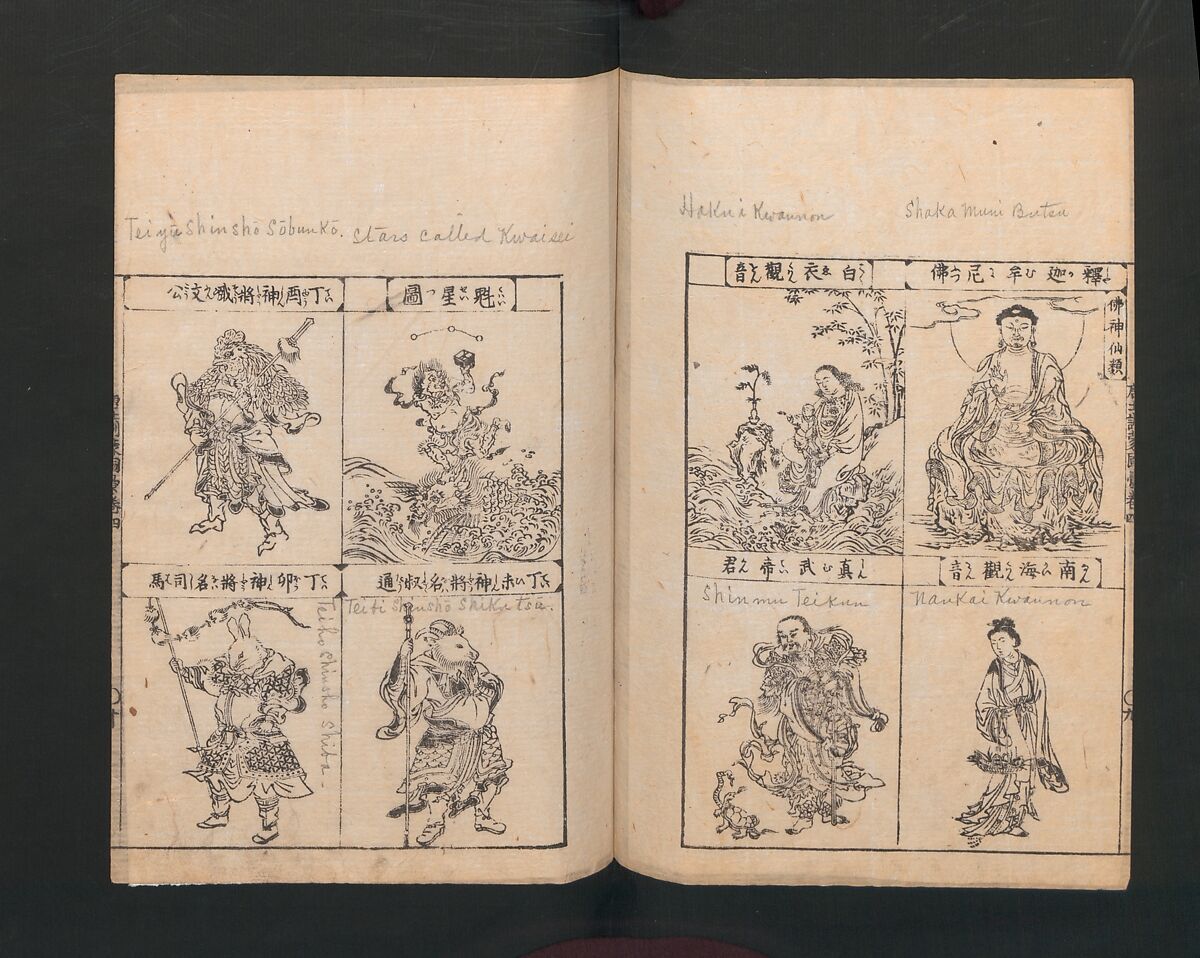 Shaka Muni Butsu
Hakui Kwannon
釋迦牟尼佛
佛神仙類
白衣觀音
南海觀音
Nankai Kwannon
真武帝君
Shinmu Teikun
〇九
Stars called Kwaisei
Teiyū Shinshō Sōbunkō.
魁星圖
丁酉神將臧文公
丁未神將名叔通
丁卯神將名司馬
Teibo Shinsho Shiba.
〇十